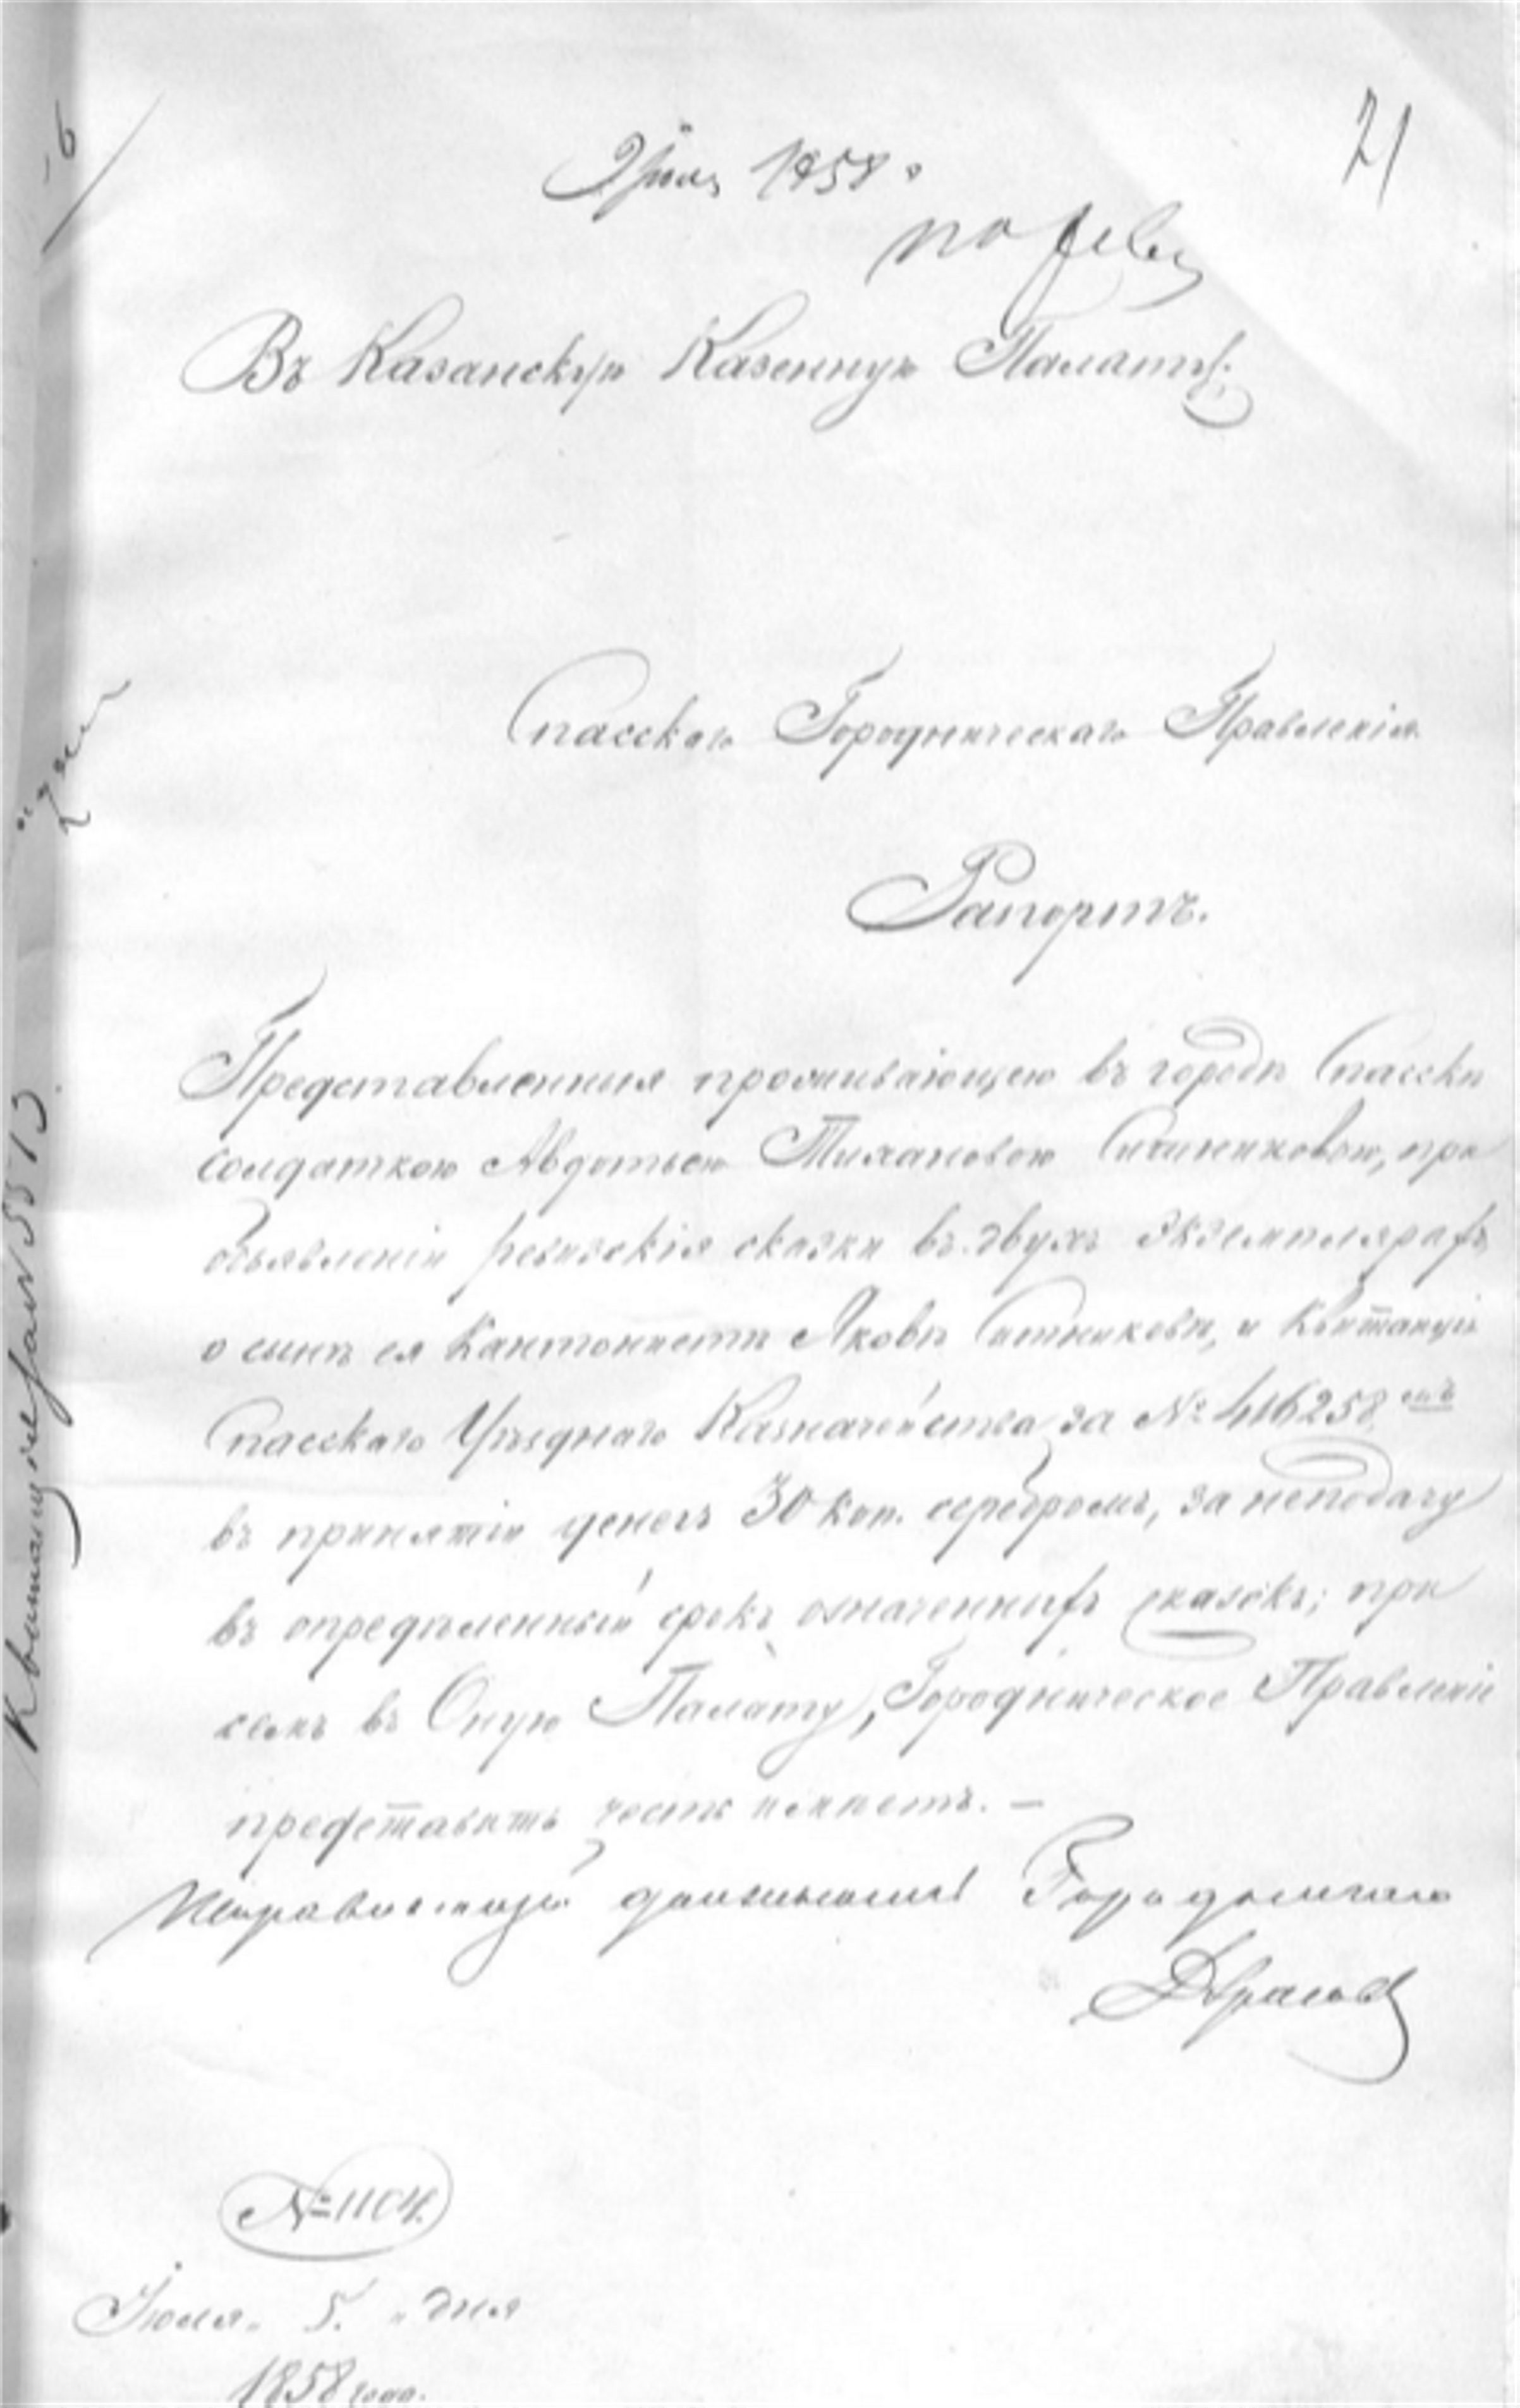 71
9 Іюля 1858 г
по реви
Въ Казанскую Казенную Палату.
Спасскаго Городническаго Правленія
Рапортъ.
Представленныя проживающею въ городѣ Спасскѣ
солдаткою Авдотьею Тихановою, при
объявленіи ревизскія сказки въ двухъ экземплярахъ
о сынѣ ея Кантонистѣ Яковѣ Ситниковѣ, и Квитанцію
Спасскаго Уѣзднаго Казначейства за № 416258мъ
въ принятіи денегъ 30 коп. серебромъ, за неподачу
въ опредѣленный срокъ означенныхъ сказокъ; при
семъ въ Оную Палату, Городническое Правленіе
представить честь имѣетъ. —
Исправляющій должность Городничаго
№ 1104.
Іюля „ 5. „ дня
1858 года.
Квитанцію